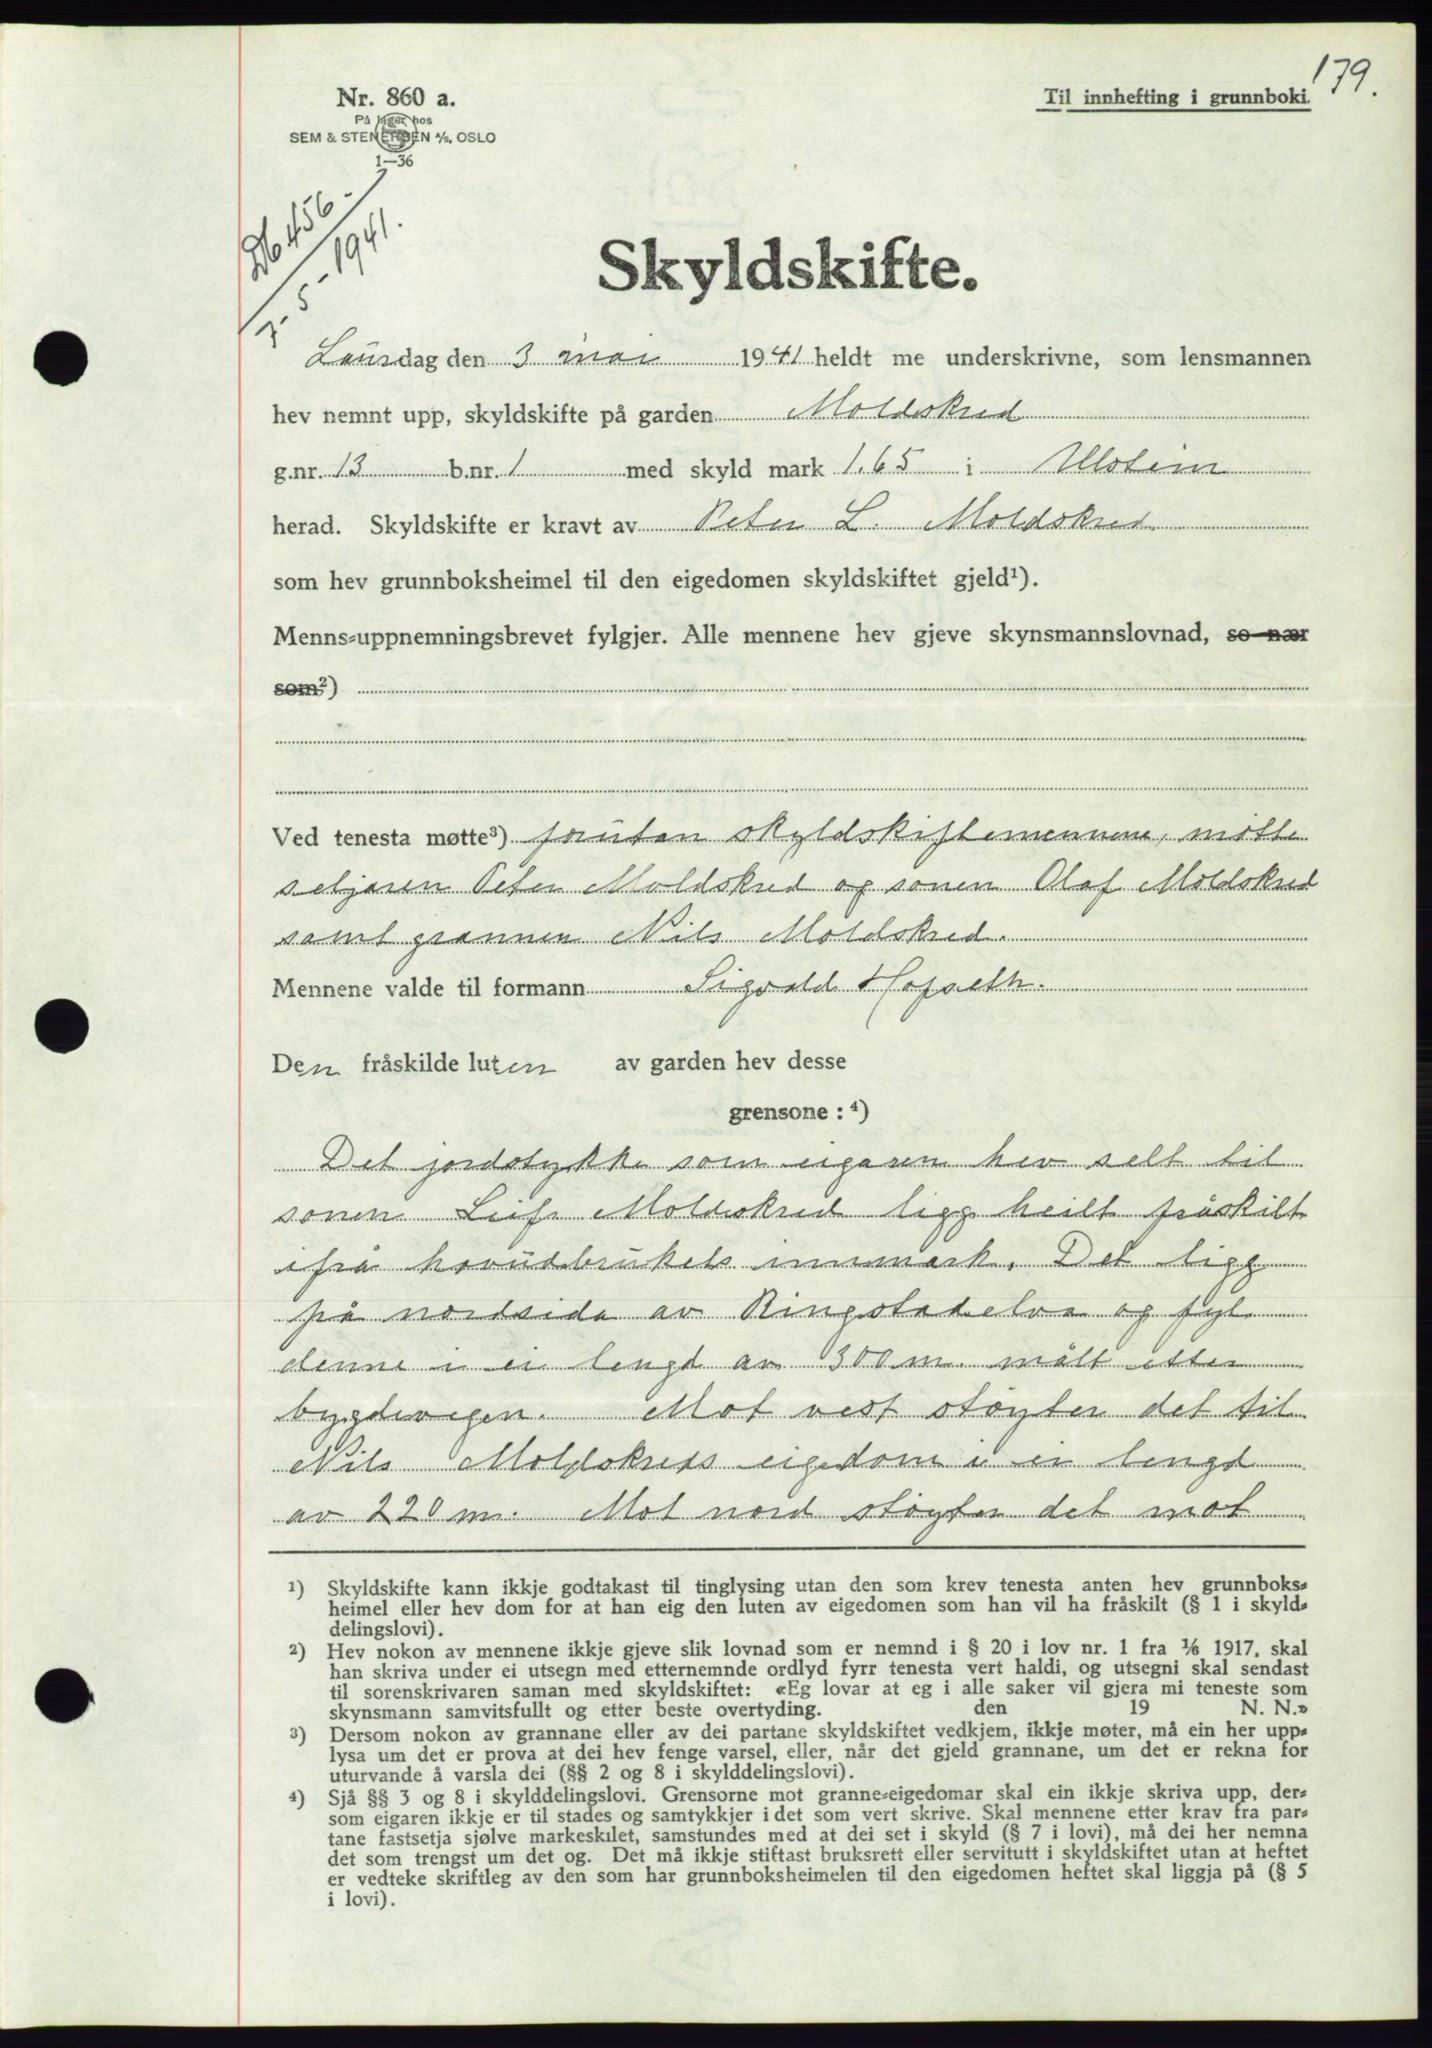 179.
Nr. 860 a.
Til innhefting i grunnboki.
På lager hos
SEM & STENERSEN A/S, OSLO
1—36
Db 456 -
7-5-1941.
Skyldskifte.
Laurdag den 3 mai 1941 heldt me underskrivne, som lensmannen
hev nemnt upp, skyldskifte på garden Moldskred
g.nr. 13 b.nr. 1 med skyld mark 1.65 i Ulstein
herad. Skyldskifte er kravt av Peter L. Moldskred
som hev grunnboksheimel til den eigedomen skyldskiftet gjeld¹).
Menns-uppnemningsbrevet fylgjer. Alle mennene hev gjeve skynsmannslovnad, so nær
som²)
Ved tenesta møtte³) forutan skyldskiftemennene, møtte
seljaren Peter Moldskred og sonen Olaf Moldskred
samt grannen Nils Moldskred.
Mennene valde til formann Sigvald Hofseth.
Den fråskilde luten av garden hev desse
grensone : ⁴)
Det jordstykke som eigaren hev selt til
sonen Leif Moldskred ligg heilt fråskilt
ifrå hovudbrukets innmark. Det ligg
på nordsida av Ringstadelva og fyl
denne i ei lengd av 300 m. målt etter
bygdevegen. Mot vest støyter det til
Nils Moldskreds eigedom i ei lengd
av 220 m. Mot nord støyter det mot
¹) Skyldskifte kann ikkje godtakast til tinglysing utan den som krev tenesta anten hev grunnboks-
heimel eller hev dom for at han eig den luten av eigedomen som han vil ha fråskilt (§ 1 i skyld-
delingslovi).
²) Hev nokon av mennene ikkje gjeve slik lovnad som er nemnd i § 20 i lov nr. 1 fra 1/6 1917, skal
han skriva under ei utsegn med etternemnde ordlyd fyrr tenesta vert haldi, og utsegni skal sendast
til sorenskrivaren saman med skyldskiftet: «Eg lovar at eg i alle saker vil gjera mi teneste som
skynsmann samvitsfullt og etter beste overtyding. den 19 N. N.»
³) Dersom nokon av grannane eller av dei partane skyldskiftet vedkjem, ikkje møter, må ein her upp-
lysa um det er prova at dei hev fenge varsel, eller, når det gjeld grannane, um det er rekna for
uturvande å varsla dei (§§ 2 og 8 i skylddelingslovi).
⁴) Sjå §§ 3 og 8 i skylddelingslovi. Grensorne mot granne-eigedomar skal ein ikkje skriva upp, der-
som eigaren ikkje er til stades og samtykkjer i det som vert skrive. Skal mennene etter krav fra par-
tane fastsetja sjølve markeskilet, samstundes med at dei set i skyld (§ 7 i lovi), må dei her nemna
det som trengst um det og. Det må ikkje stiftast bruksrett eller servitutt i skyldskiftet utan at heftet
er vedteke skriftleg av den som har grunnboksheimelen til den eigedomen heftet skal liggja på (§ 5
i lovi).